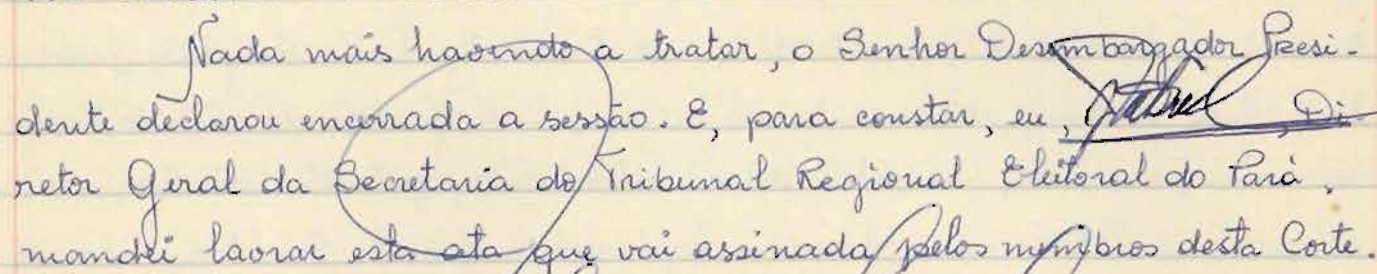 Nada mais havendo a tratar, o Senhor Desembargador Presi-
dente declarou encerrada a sessão. E, para constar, eu, , Di
retor Geral da Secretaria do Tribunal Regional Eleitoral do Pará,
mandei lavrar esta ata que vai assinada pelos membros desta Corte.